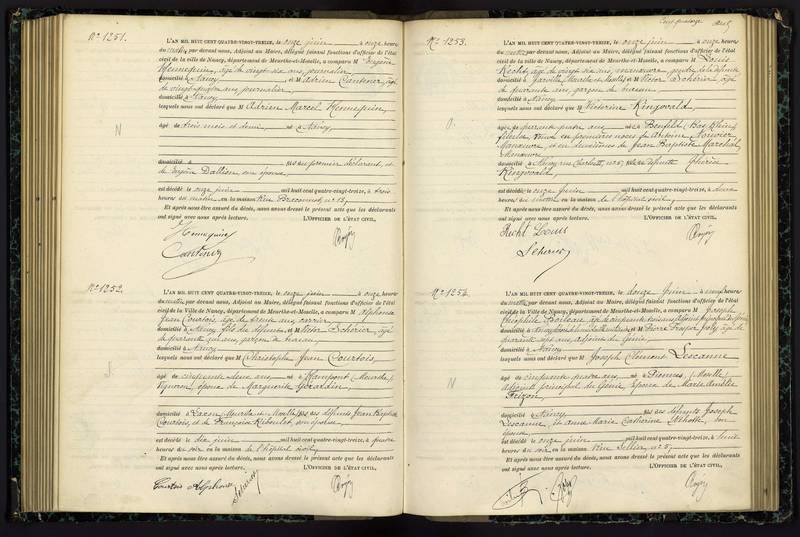 N° 1251.
L'AN MIL HUIT CENT QUATRE-VINGT-TREIZE, le onze juin à onze heures
du matin, par devant nous, Adjoint au Maire, délégué faisant fonctions d'officier de l'état
civil de la ville de Nancy, département de Meurthe-et-Moselle, a comparu M Eugène
Hennequin, âgé de vingt-six ans, journalier
domicilié à Nancy et M Adrien Cantener, âgé
de vingt-quatre ans, journalier
domicilié à Nancy
lesquels nous ont déclaré que M Adrien Marcel Hennequin,
N
âgé de trois mois et demi, né à Nancy,
domicilié à fils du premier déclarant, et
de Eugénie son épouse
est décédé le onze juin mil huit cent quatre-vingt-treize, à trois
heures du matin en la maison Rue Braconnot, n° 13,
Et après nous être assuré du décès, nous avons dressé le présent acte que les déclarants
ont signé avec nous après lecture. L'OFFICIER DE L'ÉTAT CIVIL,
Hennequin
Cantener
N° 1252.
L'AN MIL HUIT CENT QUATRE-VINGT-TREIZE, le onze juin à onze heures
du matin, par devant nous, Adjoint au Maire, délégué faisant fonctions d'officier de l'état
civil de la Ville de Nancy, département de Meurthe-et-Moselle, a comparu M Alphonse
Jean Courtois, âgé de trente ans, carrier,
domicilié à Nancy, fils du défunt et M Victor Schérier, âgé
de quarante ans, garçon de bureau,
domicilié à Nancy
lesquels nous ont déclaré que M Christophe Jean Courtois,
J
âgé de cinquante deux ans, né à Hampont (Meurthe)
Vigneron, époux de Marguerite Gérardin,
domicilié à Laxou (Meurthe-et-Moselle) fils des défunts Jean Baptiste
Courtois, et de Françoise Riboulet, son épouse
est décédé le dix juin mil huit cent quatre-vingt-treize, à quatre
heures du soir en la maison de l'hôpital civil,
Et après nous être assuré du décès, nous avons dressé le présent acte que les déclarants
ont signé avec nous après lecture. L'OFFICIER DE L'ÉTAT CIVIL,
Courtois Alphonse
Scherier
N° 1253.
L'AN MIL HUIT CENT QUATRE-VINGT-TREIZE, le onze juin à onze heures
du matin, par devant nous, Adjoint au Maire, délégué faisant fonctions d'officier de l'état
civil de la ville de Nancy, département de Meurthe-et-Moselle, a comparu M Louis
âgé de vingt six ans, manœuvre, gendre de la défunte
domicilié à et M Victor Schérier, âgé
de quarante ans, garçon de bureau
domicilié à Nancy
lesquels nous ont déclaré que M Victorine Ringwald,
âgée de quarante quatre ans née à Benfeld (Bas-Rhin)
veuve en premières noces de Antoine
Manœuvre, et en deuxièmes de Jean Baptiste Marchal
Manœuvre
domiciliée à Nancy, rue n° 57, fille de défunte Thérèse
Ringwald
est décédée le onze juin mil huit cent quatre-vingt-treize, à deux
heures du matin en la maison de l'hôpital civil,
Et après nous être assuré du décès, nous avons dressé le présent acte que les déclarants
ont signé avec nous après lecture. L'OFFICIER DE L'ÉTAT CIVIL,
Louis
Scherier
N° 1254.
L'AN MIL HUIT CENT QUATRE-VINGT-TREIZE, le douze juin à neuf heures
du matin, par devant nous, Adjoint au Maire, délégué faisant fonctions d'officier de l'état
civil de la Ville de Nancy, département de Meurthe-et-Moselle, a comparu M Joseph
Théophile
domicilié à et M Pierre Joly, âgé de
quarante sept ans, adjoint du Génie,
domicilié à Nancy
lesquels nous ont déclaré que M Joseph Clément Lescanne
N
âgé de cinquante quatre ans, né à Piennes, (Moselle)
adjoint principal du Génie, Epoux de Marie Amélie
Frizon,
domicilié à Nancy fils des défunts Joseph
Lescanne, et Anne Marie Catherine son
épouse
est décédé le onze juin mil huit cent quatre-vingt-treize, à huit
heures du soir en la maison rue Sellier, n° 5,
Et après nous être assuré du décès, nous avons dressé le présent acte que les déclarants
ont signé avec nous après lecture. L'OFFICIER DE L'ÉTAT CIVIL,